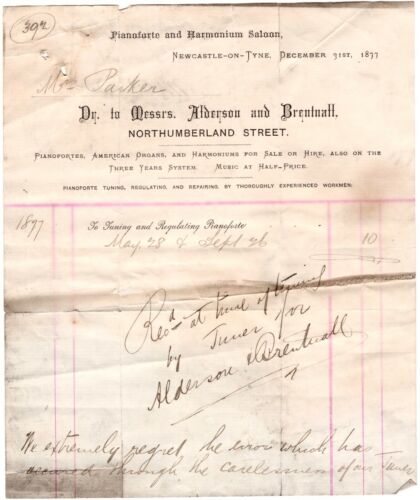 397
Pianoforte and Harmonium Saloon,
Newcastle-on-Tyne, December 31st, 1877
Mr Parker
Dr. to Messrs. Alderson and Brentnall,
NORTHUMBERLAND STREET.
Pianofortes, American Organs, and Harmoniums for Sale or Hire, also on the
Three Years System. Music at Half-Price.
PIANOFORTE TUNING, REGULATING, AND REPAIRING, BY THOROUGHLY EXPERIENCED WORKMEN.
1877 To Tuning and Regulating Pianoforte
May 28 & Sept 26 10
Recd at time of tuning
by Tuner for
Alderson & Brentnall
We extremely regret he error which has
occured through the carelessness of our Tuner